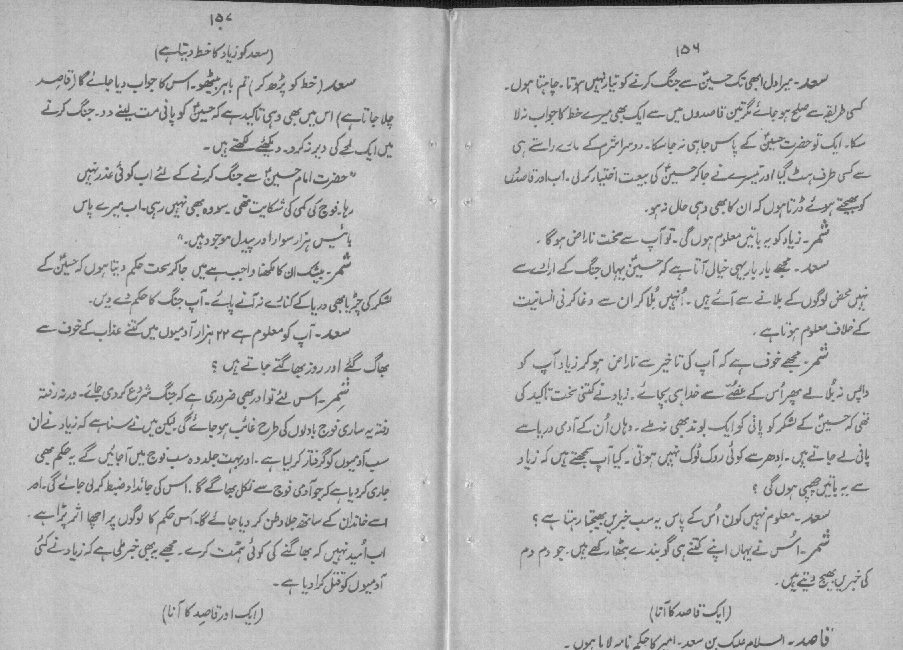 ۱۵۶
سعد۔ میرا دل ابھی تک حسینؑ سے جنگ کرنے کو تیار نہیں ہوتا۔ چاہتا ہوں۔
کسی طریقہ سے صلح ہو جائے مگر تین قاصدوں میں سے ایک بھی میرے خط کا جواب نہ لا
سکا۔ ایک تو حضرت حسینؑ کے پاس جا ہی نہ جا سکا۔ دوسرا شرم کے مارے راستے ہی
سے کسی طرف ہٹ گیا اور تیسرے نے جا کر حسینؑ کی بیعت اختیار کر لی۔ اب اور قاصدوں
کو بھیجتے ہوئے ڈرتا ہوں کہ ان کا بھی وہی حال نہ ہو۔
شمر۔ زیاد کو یہ باتیں معلوم ہوں گی۔ تو آپ سے سخت ناراض ہو گا۔
سعد۔ مجھے بار بار یہی خیال آتا ہے کہ حسینؑ یہاں جنگ کے ارادے سے
نہیں محض لوگوں کے بلانے سے آئے ہیں۔ اُنہیں بُلا کر ان سے دغا کرنی انسانیت
کے خلاف معلوم ہوتا ہے۔
شمر۔ مجھے خوف ہے کہ آپ کی تاخیر سے ناراض ہو کر زیاد آپ کو
واپس نہ بلا لے پھر اُس کے غصّے سے خدا ہی بچائے۔ زیاد نے کتنی سخت تاکید کی
تھی کہ حسینؑ کے لشکر کو پانی کو ایک بوند بھی نہ ملے۔ وہاں اُن کے آدمی دریا سے
پانی لے جاتے ہیں۔ اِدھر سے کوئی روک ٹوک نہیں ہوتی۔ کیا آپ سمجھتے ہیں کہ زیاد
سے یہ باتیں چھپی ہوں گی ؟
سعد۔ معلوم نہیں کون اُس کے پاس یہ سب خبریں بھیجتا رہتا ہے ؟
شمر۔ اُس نے یہاں اپنے کتنے ہی گوبندے بٹھا رکھے ہیں۔ جو دم دم
کی خبریں بھیج دیتے ہیں۔
(ایک قاصد کا آنا)
قاصد۔ السلام علیک بن سعد۔ امیر کا حکم نامہ لایا ہوں۔
۱۵۷
(سعد کو زیاد کا خط دیتا ہے)
سعد (خط کو پڑھ کر) تم باہر بیٹھو۔ اس کا جواب دیا جائے گا (قاصد
چلا جاتا ہے) اس میں بھی وہی تاکید ہے کہ حسینؑ کو پانی مت لینے دو۔ جنگ کرنے
میں ایک لمحے کی دیر نہ کرو۔ دیکھئے لکھتے ہیں۔
"حضرت امام حسینؑ سے جنگ کرنے کے لئے اب کوئی عذر نہیں
رہا۔ فوج کی کمی کی شکایت تھی۔ سو وہ بھی نہیں رہی۔ اب میرے پاس
بائیس ہزار سوار اور پیدل موجود ہیں۔"
شمر۔ بیشک ان کا لکھنا واجب ہے میں جا کر سخت حکم دیتا ہوں کہ حسینؑ کے
لشکر کی چڑیا بھی دریا کے کنارے نہ آنے پائے۔ آپ جنگ کا حکم دے دیں۔
سعد۔ آپ کو معلوم ہے ۲۲ ہزار آدمیوں میں کتنے عذاب کے خوف سے
بھاگ گئے اور روز بھاگتے جاتے ہیں ؟
شمر۔ اس لئے تو اور بھی ضروری ہے کہ جنگ شروع کر دی جائے۔ ورنہ رفتہ
رفتہ یہ ساری فوج بادلوں کی طرح غائب ہو جائے گی لیکن میں نے سنا ہے کہ زیاد نے ان
سب آدمیوں کو گرفتار کر لیا ہے۔ اور بہت جلد وہ سب فوج میں آ جائیں گے یہ حکم بھی
جاری کر دیا ہے کہ جو آدمی فوج سے نکل بھاگے گا۔ اس کی جائداد ضبط کر لی جائے گی۔ اور
اسے خاندان کے ساتھ جلا وطن کر دیا جائے گا۔ اُس حکم کا لوگوں پر اچھا اثر پڑا ہے۔
اب اُمید نہیں کہ بھاگنے کی کوئی ہمّت کرے۔ مجھے یہ بھی خبر ملی ہے کہ زیاد نے کئی
آدمیوں کو قتل کرا دیا ہے۔
(ایک اور قاصد کا آنا)